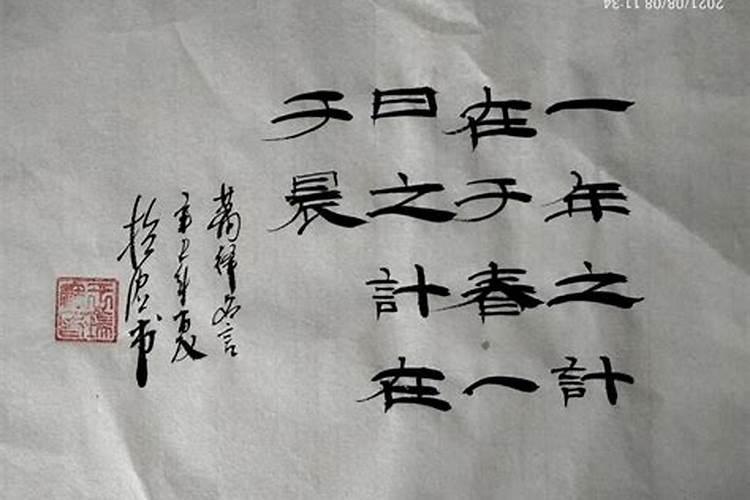 一年之計
在于春一
日之計在
于晨
蕭繹名言
辛丑年夏
2021/08/08 11:34